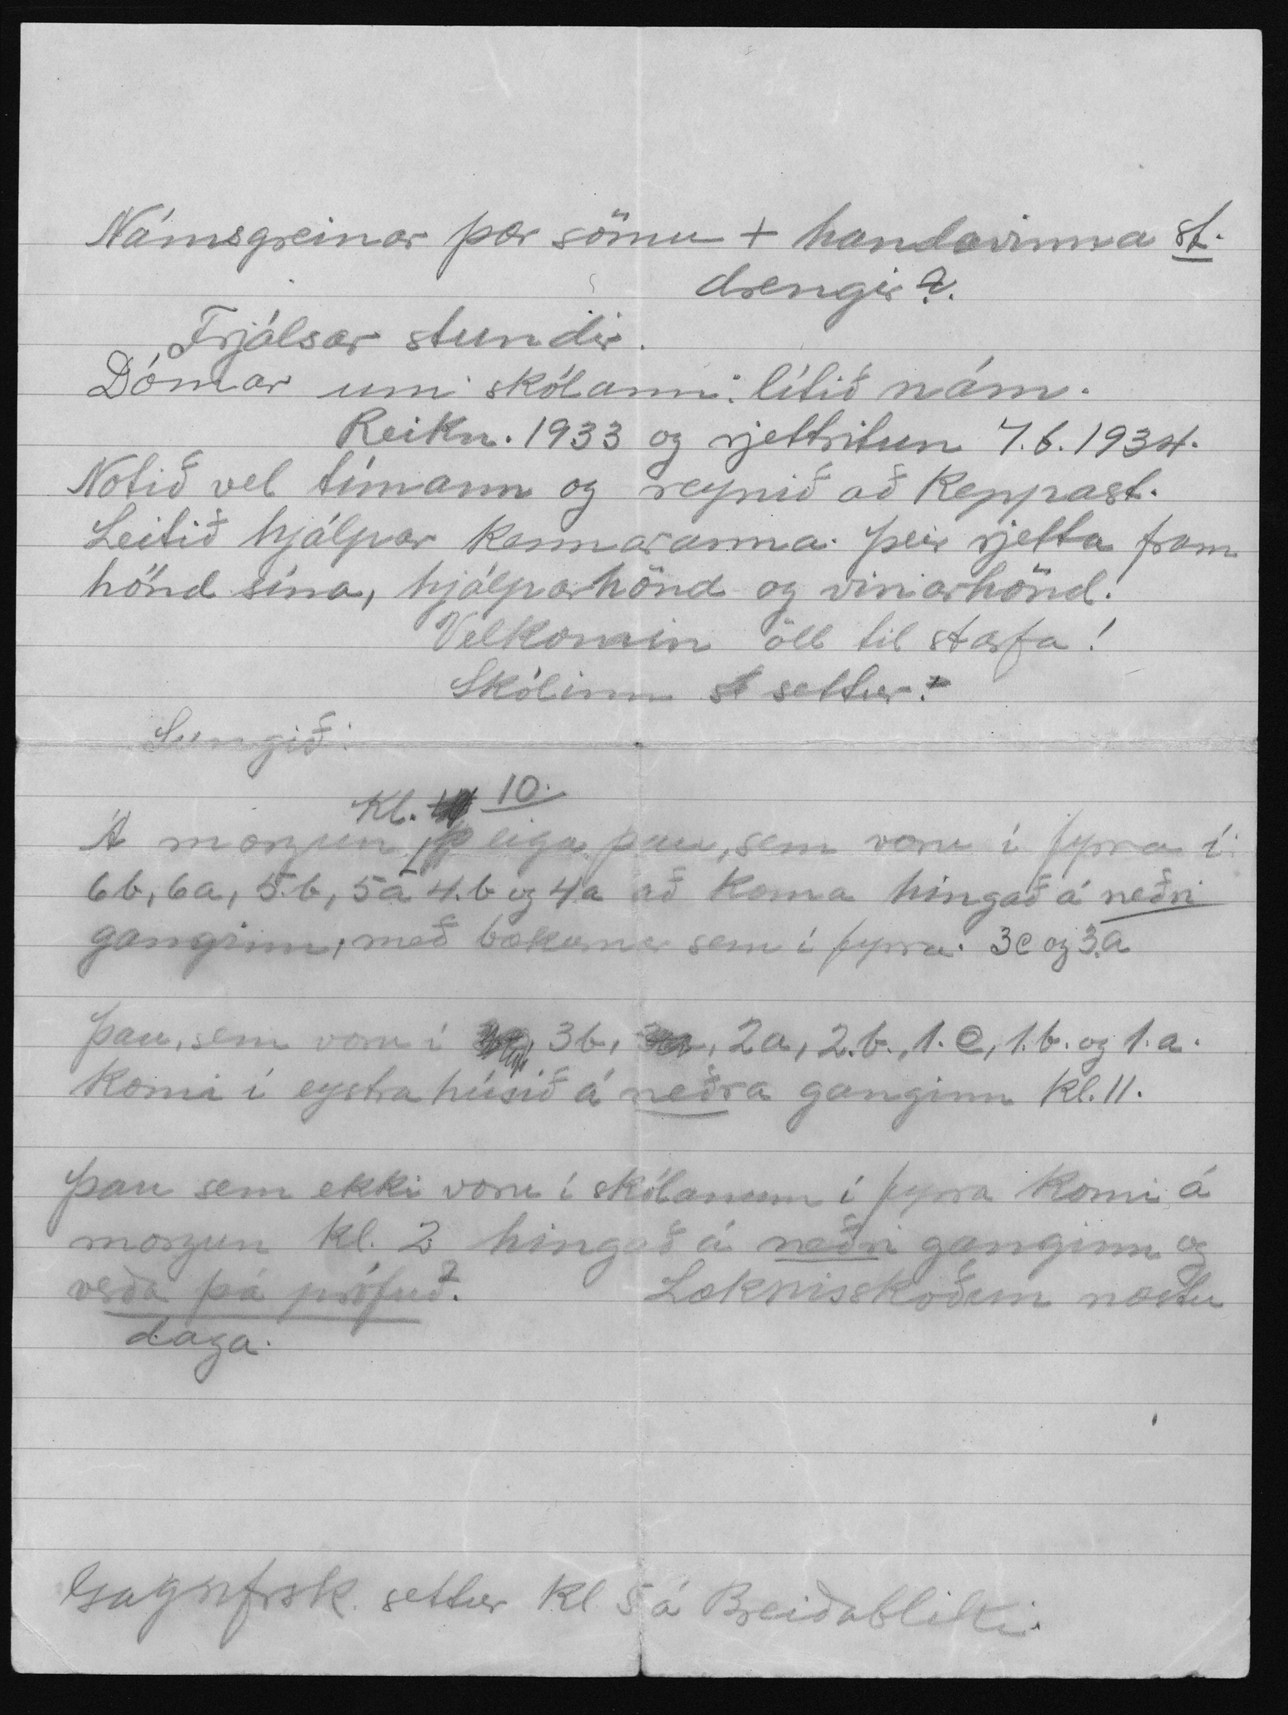 Námsgreinar þær sömu + handavinna st.
drengir?.
Frjálsar stundir.
Dómar um skólann: lítið nám.
Reikn. 1933 og rjettritun 7.6.1934.
Notið vel tímann og reynið að keppast.
Leitið hjálpar kennaranna. Þeir rjetta fram
hönd sína, hjálparhönd og vinarhönd.
Velkomin öll til starfa!
Skólinn settur.
Sungið:
Kl. 10.
Á morgun eiga þau, sem voru í fyrra í:
6b, 6a, 5.b, 5a 4.b og 4a að koma hingað á neðri
ganginn, með bækurnar sem í fyrra. 3c og 3.a
Þau, sem voru í 3b, 2a, 2.b., 1.c, 1.b. og 1.a.
komi í eystra húsið á neðra ganginn kl. 11.
Þau sem ekki voru í skólanum í fyrra komi á
morgun kl. 2 hingað á neðri ganginn og
verða þá prófuð?. Læknisskoðun næstu
daga.
Gagnfrsk. settur kl 5 á Breiðabliki.